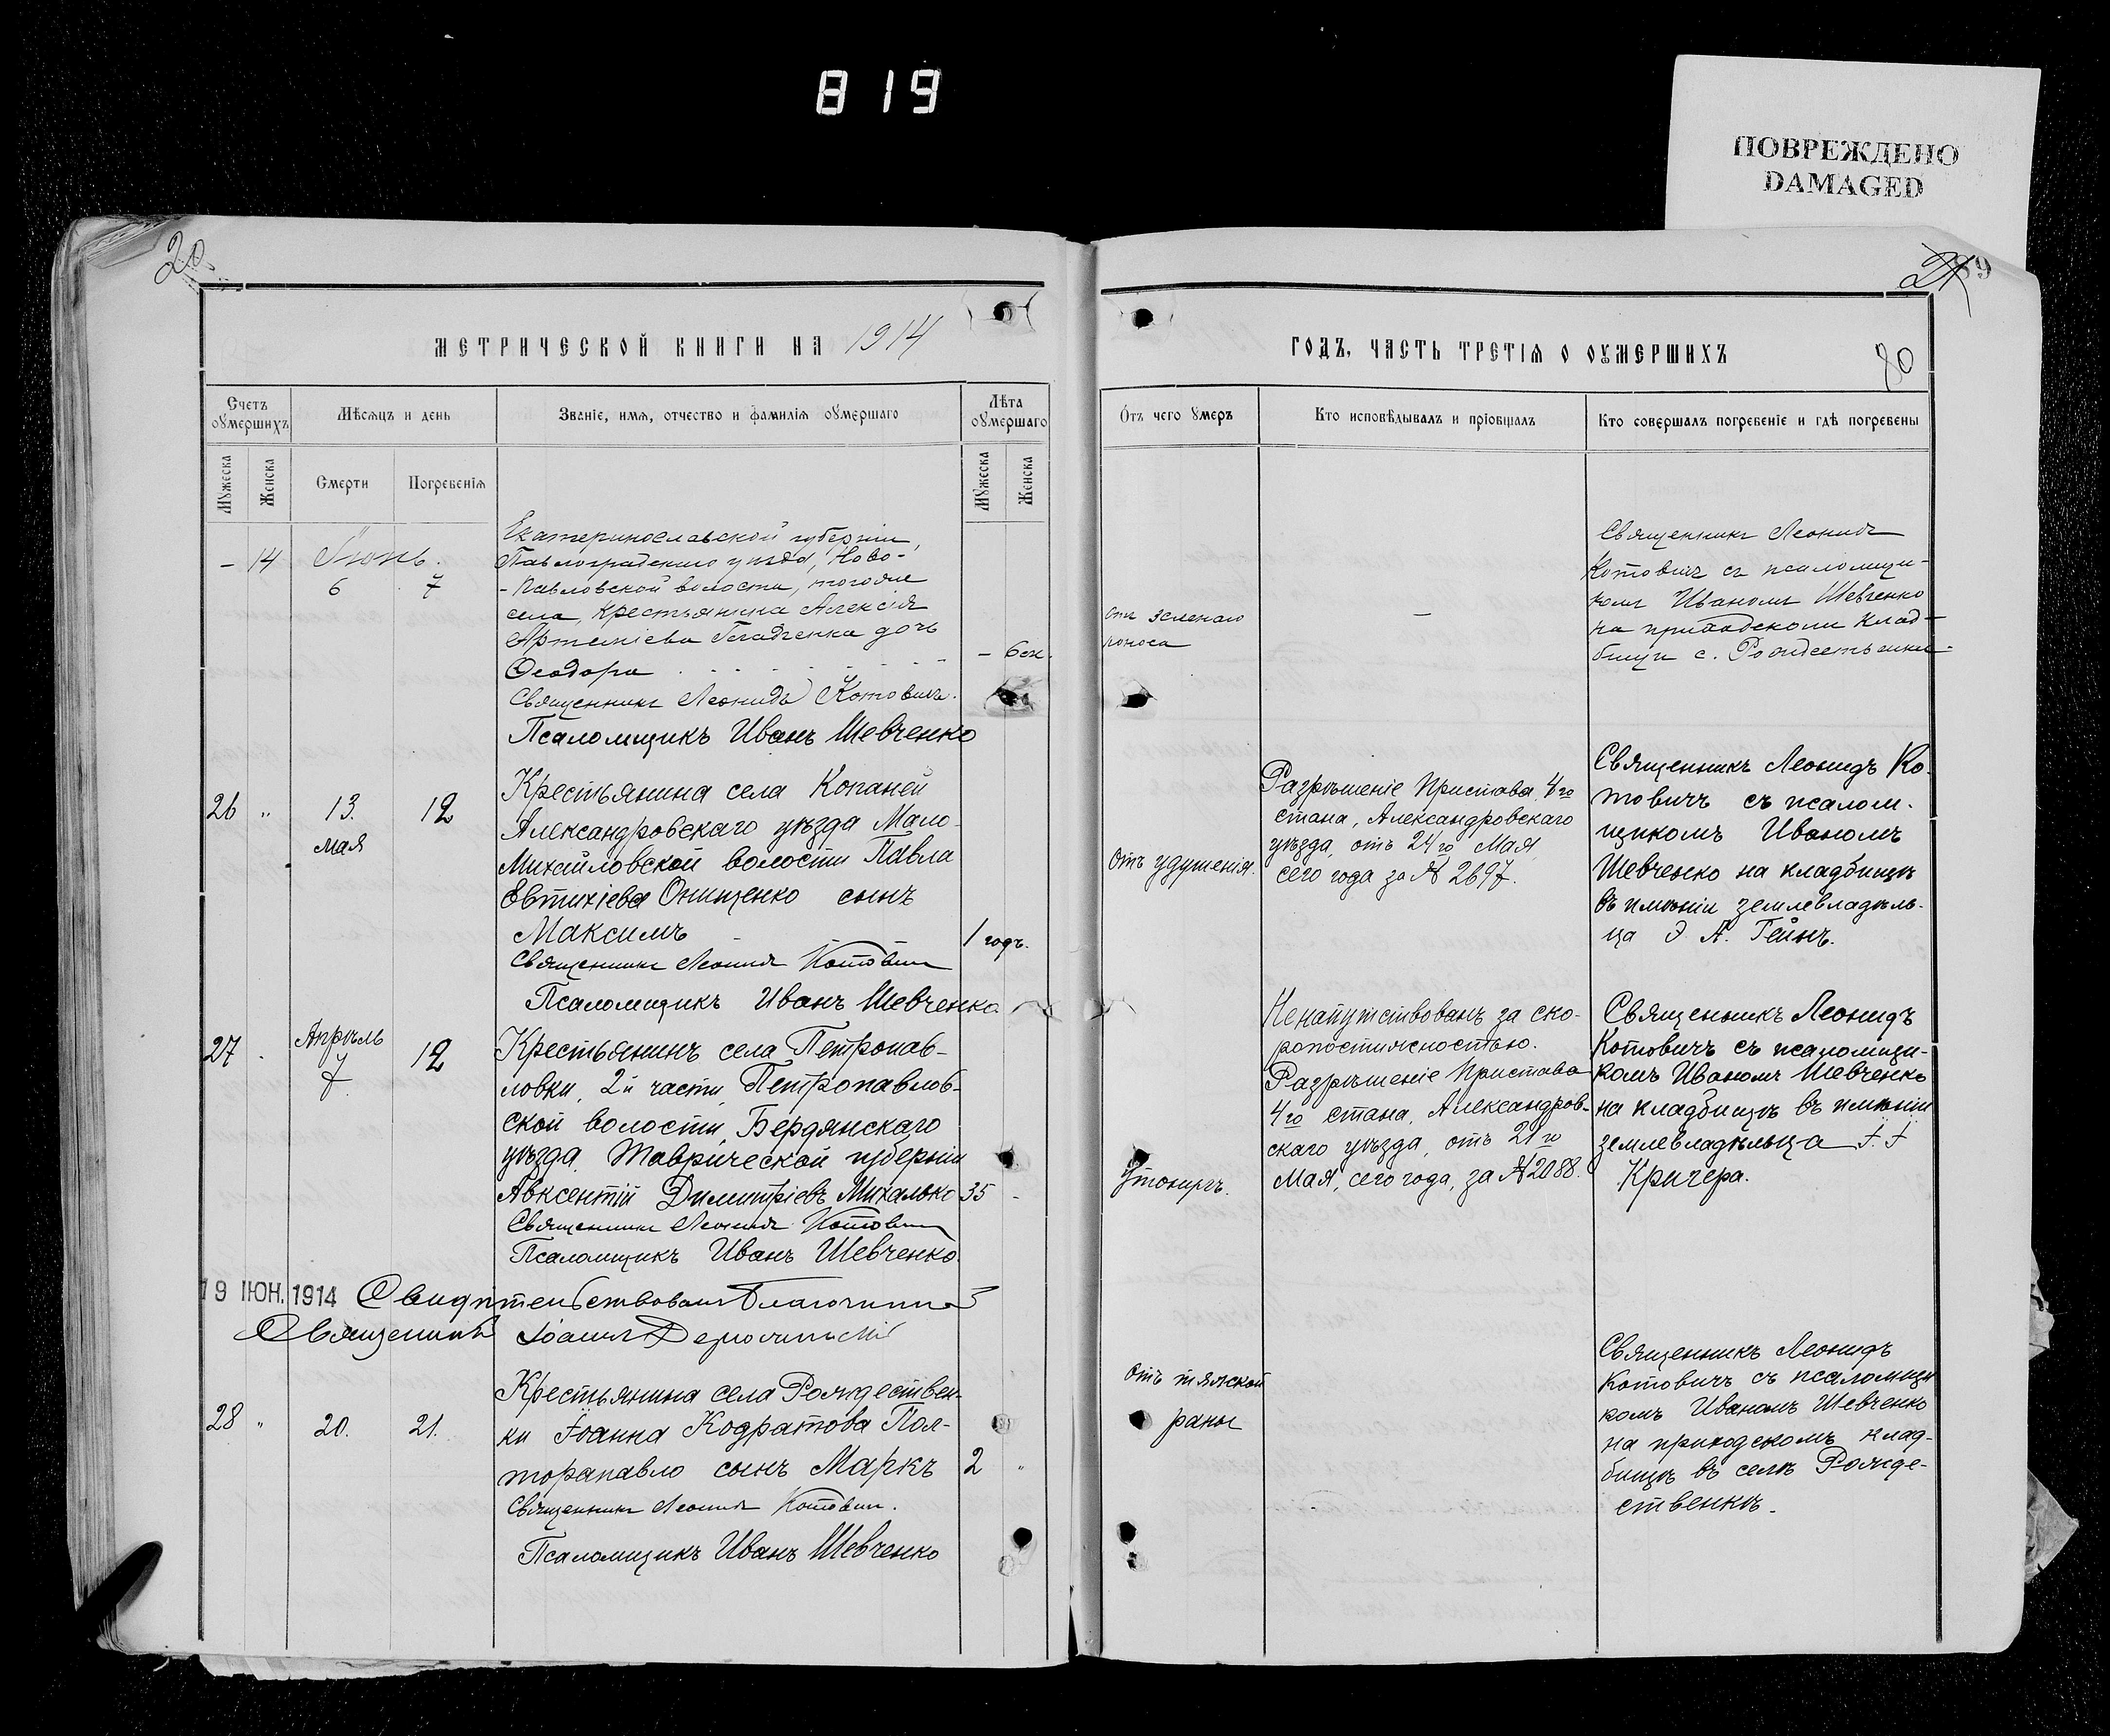 819
ПОВРЕЖДЕНО
DAMAGED
20
89
80
МЕТРИЧЕСКОЙ КНИГИ НА 1914
ГОДЪ, ЧАСТЬ ТРЕТІЯ О ОУМЕРШИХЪ
Счетъ оумершихъ
Мѣсяцъ и день
Званіе, имя, отчество и фамилія оумершаго
Лѣта оумершаго
Отъ чего умеръ
Кто исповѣдывалъ и пріобщалъ
Кто совершалъ погребеніе и гдѣ погребены
Мужеска
Женска
Смерти
Погребенія
Мужеска
Женска
- 14
Іюнь.
6
7
Екатеринославской губерніи,
Павлоградскаго уѣзда, Ново-
-Павловской волости, тогоже
села, крестьянина Алексія
Артеміева дочь
Ѳеодора
- 6 м.
Священникъ Леонидъ Котовичъ.
Псаломщикъ Иванъ Шевченко
отъ зеленаго
поноса
-
Священникъ Леонидъ
Котовичъ съ псаломщи-
комъ Иваномъ Шевченко
на приходскомъ клад-
бищѣ с. Рождественки
26 "
13.
мая
12
Крестьянина села Копаней
Александровскаго уѣзда Мало-
Михайловской волости Павла
Евтихіева Онищенко сынъ
Максимъ
1 годъ.
Священникъ Леонидъ Котовичъ
Псаломщикъ Иванъ Шевченко
Отъ удушенія.
Разрѣшеніе Пристава 4го
стана, Александровскаго
уѣзда, отъ 24го Мая
сего года за № 2697.
Священникъ Леонидъ Ко-
товичъ съ псалом-
щикомъ Иваномъ
Шевченко на кладбищѣ
въ имѣніи землевладѣль-
ца Э А. Гейнъ.
27
Апрѣль
7
12
Крестьянинъ села Петропав-
ловки, 2й части, Петропавлов-
ской волости, Бердянскаго
уѣзда, Таврической губерніи
Авксентій Димитріевъ Михалько
35 -
Священникъ Леонидъ Котовичъ
Псаломщикъ Иванъ Шевченко.
Утонулъ.
Ненапутствованъ за ско-
ропостижностью.
Разрѣшеніе Пристава
4го стана, Александров-
скаго уѣзда, отъ 21го
Мая, сего года, за № 2088.
Священникъ Леонидъ
Котовичъ съ псаломщи-
комъ Иваномъ Шевченко
на кладбищѣ въ имѣніи
землевладѣльца І. І
Кричера.
19 ІЮН. 1914 Свидѣтельствовалъ Благочинный
Священникъ Іоаннъ
28 "
20.
21.
Крестьянина села Рождествен-
ки Іоанна Кодратова Пол-
торапавло сынъ Маркъ
2 "
Священникъ Леонидъ Котовичъ.
Псаломщикъ Иванъ Шевченко
Отъ тяжской
раны
Священникъ Леонидъ
Котовичъ съ псаломщи
комъ Иваномъ Шевченко
на приходскомъ клад-
бищѣ въ селѣ Рожде-
ственкѣ.